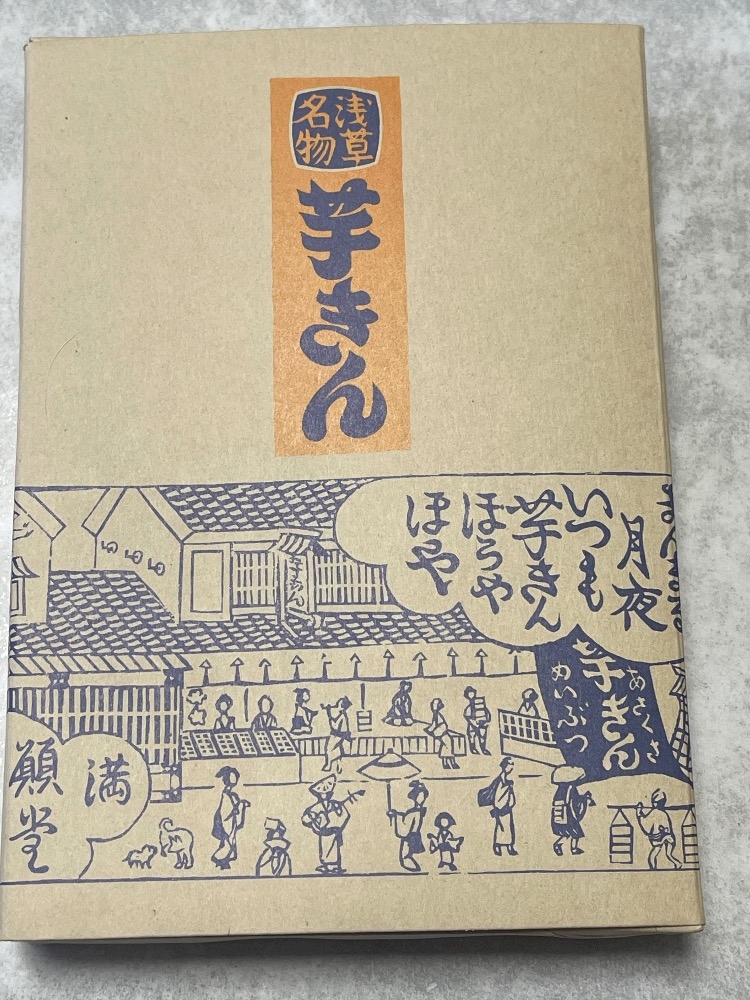 浅草
名物
芋きん
月夜
いつも
芋きん
ほうや
ほや
芋きん
あさくさ
芋きん
めいぶつ
満
願堂